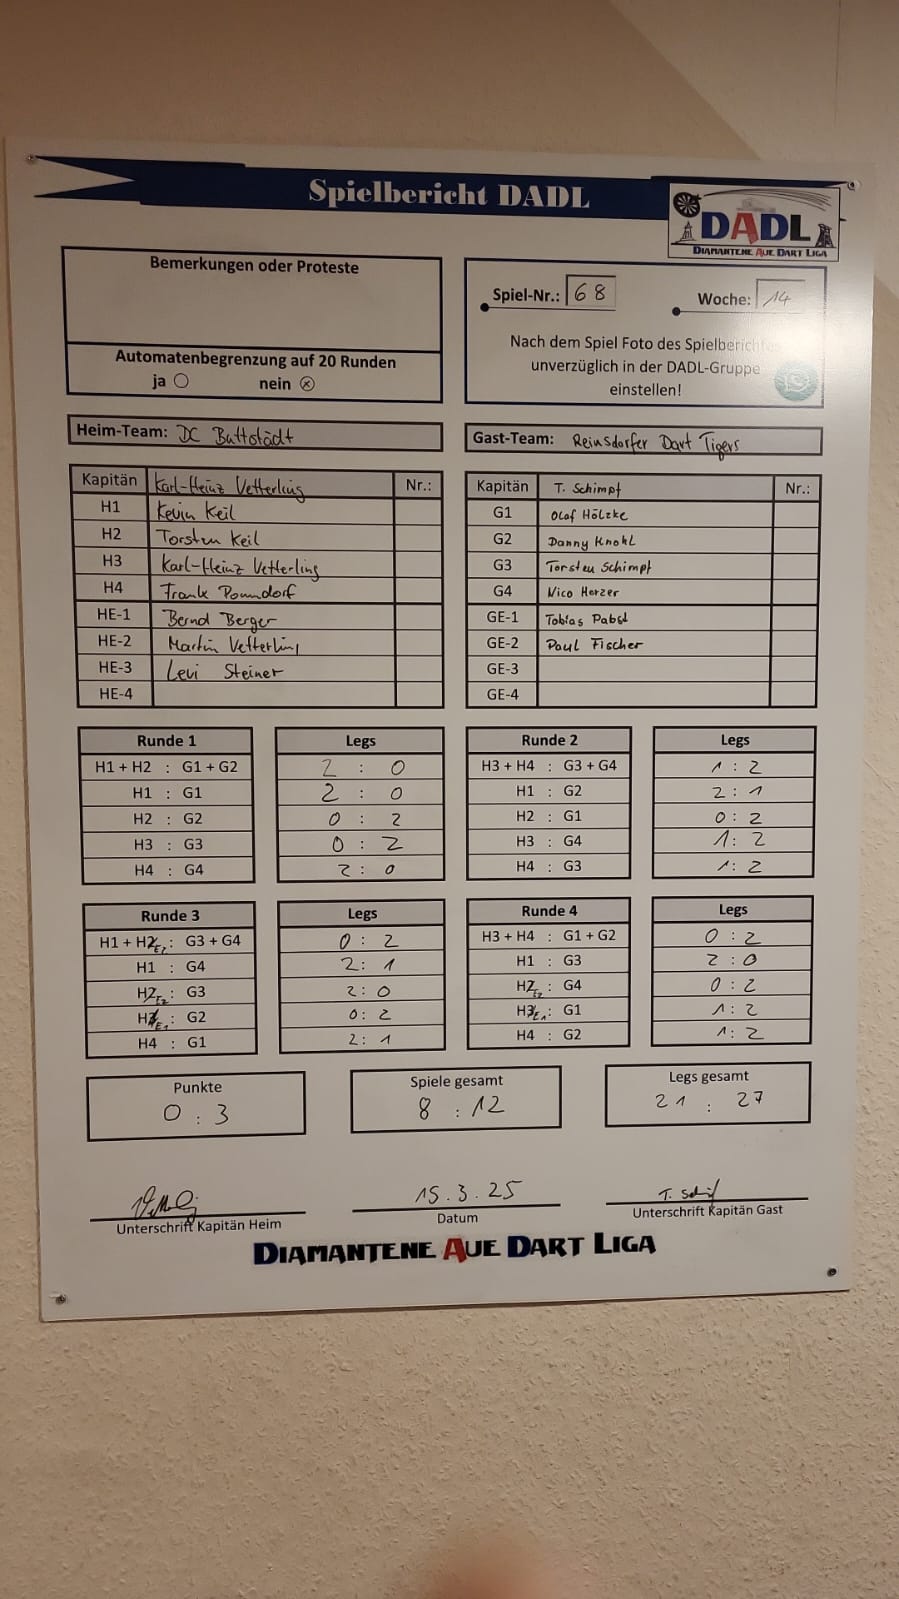 Spielbericht DADL
DADL
DIAMANTENE AUE DART LIGA
Bemerkungen oder Proteste
Automatenbegrenzung auf 20 Runden
ja nein
Spiel-Nr.: 68 Woche: 14
Nach dem Spiel Foto des Spielberichtes
unverzüglich in der DADL-Gruppe
einstellen!
Heim-Team: DC Buttstädt
Gast-Team: Reinsdorfer Dart Tigers
Kapitän Karl-Heinz Vetterling Nr.:
H1 Kevin Keil
H2 Torsten Keil
H3 Karl-Heinz Vetterling
H4 Frank
HE-1 Bernd Berger
HE-2 Martin Vetterling
HE-3 Levi Steiner
HE-4
Kapitän T. Schimpf Nr.:
G1 Olaf Hölzke
G2 Danny Knohl
G3 Torsten Schimpf
G4 Nico Herzer
GE-1 Tobias Pabst
GE-2 Paul Fischer
GE-3
GE-4
Runde 1 Legs
H1 + H2 : G1 + G2 2 : 0
H1 : G1 2 : 0
H2 : G2 0 : 2
H3 : G3 0 : 2
H4 : G4 2 : 0
Runde 2 Legs
H3 + H4 : G3 + G4 1 : 2
H1 : G2 2 : 1
H2 : G1 0 : 2
H3 : G4 1 : 2
H4 : G3 1 : 2
Runde 3 Legs
H1 + H2 : G3 + G4 0 : 2
H1 : G4 2 : 1
H2 E2 : G3 2 : 0
H3 E1 : G2 0 : 2
H4 : G1 2 : 1
Runde 4 Legs
H3 + H4 : G1 + G2 0 : 2
H1 : G3 2 : 0
H2 E2 : G4 0 : 2
H3 E1 : G1 1 : 2
H4 : G2 1 : 2
Punkte
0 : 3
Spiele gesamt
8 : 12
Legs gesamt
21 : 27
Unterschrift Kapitän Heim
15.3.25
Datum
T.
Unterschrift Kapitän Gast
DIAMANTENE AUE DART LIGA